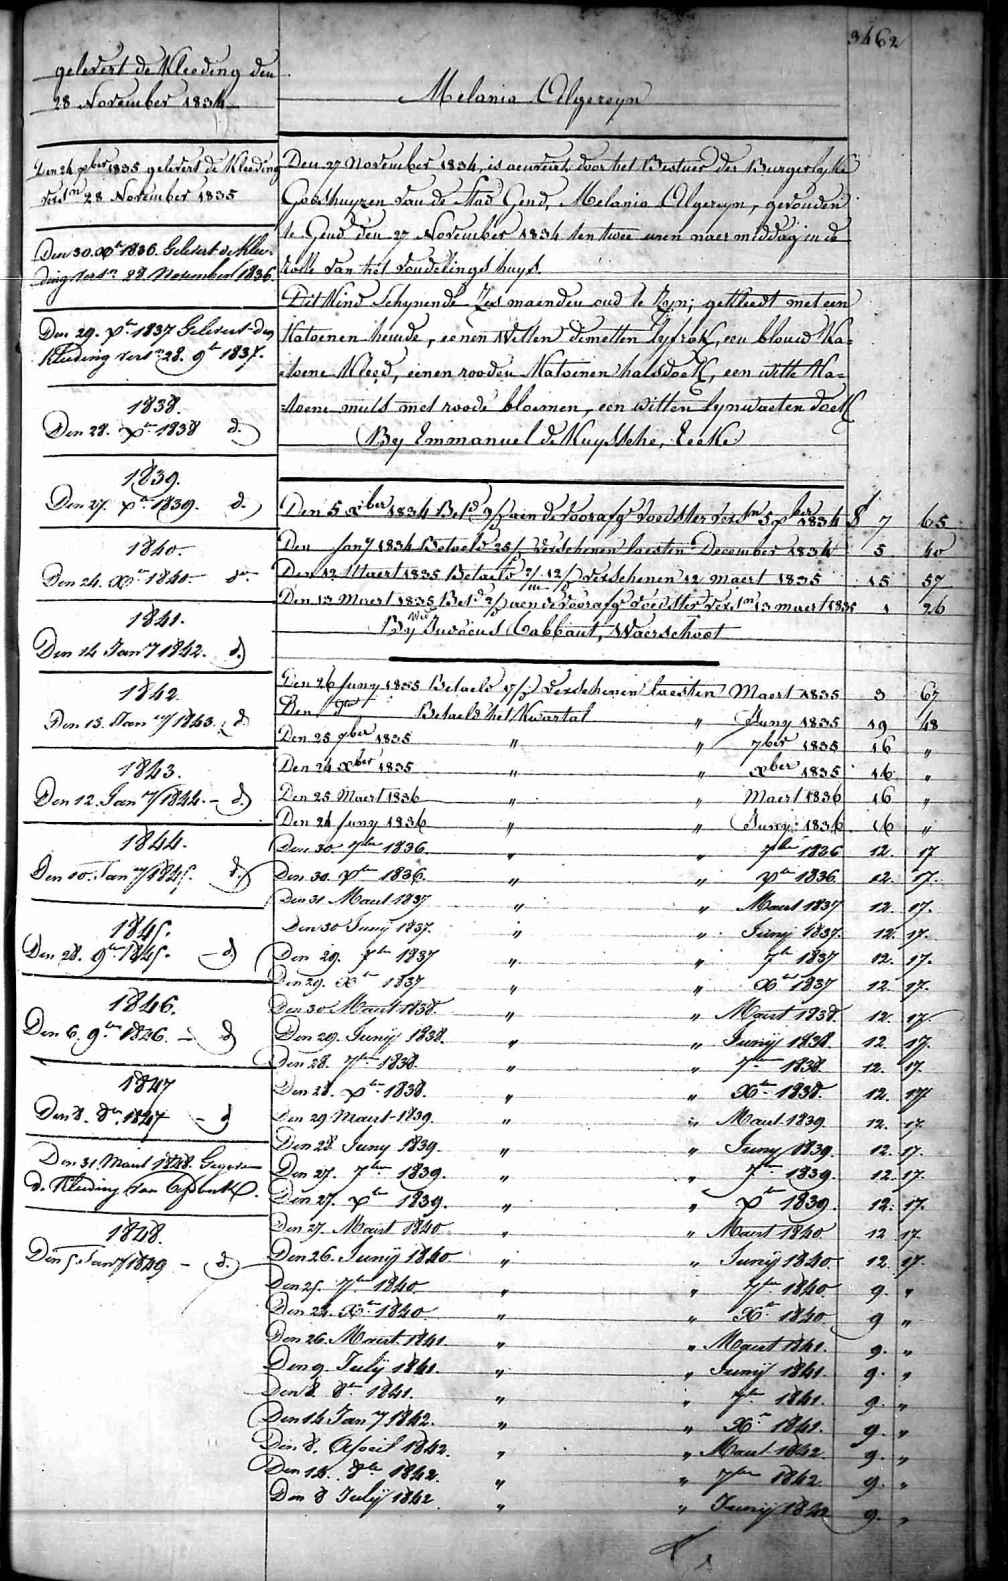 3462
gelevert de Kleeding den
28 November 1834
Melania Algereyn
Den 24 xber 1835 gelevert de Kleeding
versn 28 November 1835
Den 30 Xr 1836. Gelevert de Klee-
ding versn 28. November 1836.
Den 29. Xr 1837 Gelevert den
Kleeding versn 28. 9r 1837.
1838.
Den 28. Xr 1838 d.
1839.
Den 27. Xr 1839. d.
1840.
Den 24. Xr 1840.
1841.
Den 14 Jany 1842. d.
1842.
Den 13. Jany 1843. d
1843.
Den 12. Jany 1844. - d.
1844.
Den 10. Jany 1845. d.
1845.
Den 28. 9r 1845. - d
1846.
Den 6. 9r 1846. - d
1847
Den 8. 8r 1847 - d
Den 31 Maert 1848. Gegeven
d. Kleeding van
1848.
Den 5 Jany 1849 - d.
Den 27 November 1834, is aenveirt door het Bestuer der Burgerlyke
Godshuyzen van de Stad Gend, Melania Algereyn, gevonden
te Gend den 27 November 1834 ten twee uren naer middag in de
rolle van het vondelings huys.
Dit Kind Schynende Zes maenden oud te Zyn; gekleedt met een
Katoenen hemde, eenen witten demetten lyfrok, een blauw Ka-
toene Kleed, eenen rooden Katoenen halsdoek, een witte Ka-
toene muts met roode bloemen, een witten lynwaeten doek
By Emmanuel de Kuyssche, Eecke
Den 5 xber 1834 Betd 9/ aen de voorafge voedster versn 5 xber 1834 £ 7 65
Den Jany 1834 Betaeld 25/ verschenen laesten December 1834 5 40
Den 12 Maert 1835 Betaeld 2/m 12/ verschenen 12 maert 1835 15 57
Den 13 Maert 1835 Betd 2/ aen de voorafge voedster versn 13 maert 1835 1 26
By Wed Judocus Cabbaut, Waerschoot
Den 26 Juny 1835 Betaeld 17/ verschenen laesten Maert 1835 3 67
Den do Betaeld het Kwartal " Juny 1835 19 48
Den 25 7ber 1835 " " 7ber 1835 16 "
Den 24 xber 1835 " " xber 1835 16 "
Den 25 Maert 1836 " " Maert 1836 16 "
Den 24 Juny 1836 " " Juny 1836 16 "
Den 30 7ber 1836. " " 7ber 1836 12. 17
Den 30. Xr 1836. " " Xr 1836. 12. 17.
Den 31 Maert 1837 " " Maert 1837 12. 17.
Den 30 Juny 1837. " " Juny 1837. 12. 17.
Den 29. 7r 1837 " " 7r 1837 12. 17.
Den 29. Xr 1837 " " Xr 1837 12. 17.
Den 30 Maert 1838. " " Maert 1838. 12. 17.
Den 29. Junij 1838. " " Junij 1838. 12. 17.
Den 28. 7r 1838. " " 7r 1838. 12. 17.
Den 28. Xr 1838. " " Xr 1838. 12. 17
Den 29 Maert 1839. " " Maert 1839. 12. 17.
Den 28 Juny 1839. " " Juny 1839. 12. 17.
Den 27. 7r 1839. " " 7r 1839. 12. 17.
Den 27. Xr 1839. " " Xr 1839. 12. 17.
Den 27. Maert 1840. " " Maert 1840. 12 17.
Den 26. Junij 1840. " " Junij 1840. 12. 17.
Den 25. 7r 1840. " " 7r 1840. 9. "
Den 24. Xr 1840. " " Xr 1840. 9 "
Den 26. Maert. 1841. " " Maert 1841. 9. "
Den 9. Julij 1841. " " Junij 1841. 9. "
Den 8. 8r 1841. " " 7r 1841. 9. "
Den 14 Jany 1842. " " Xr 1841. 9. "
Den 8. April 1842. " " Maert 1842. 9. "
Den 14. 8r 1842. " " 7r 1842. 9. "
Den 8 Julij 1842 " " Junij 1842 9. "